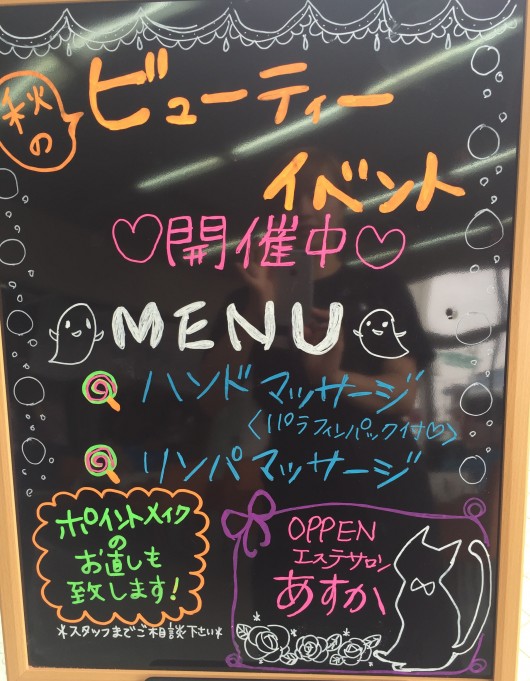 秋の
ビューティー
イベント
♡開催中♡
MENU
ハンドマッサージ
〈パラフィンパック付♡〉
リンパマッサージ
ポイントメイク
の
お直しも
致します!
*スタッフまでご相談下さい*
OPPEN
エステサロン
あすか